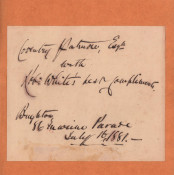 Coventry Patmore, Esqre
with
White's best compliments.
Brighton
Marine Parade
July 1881.